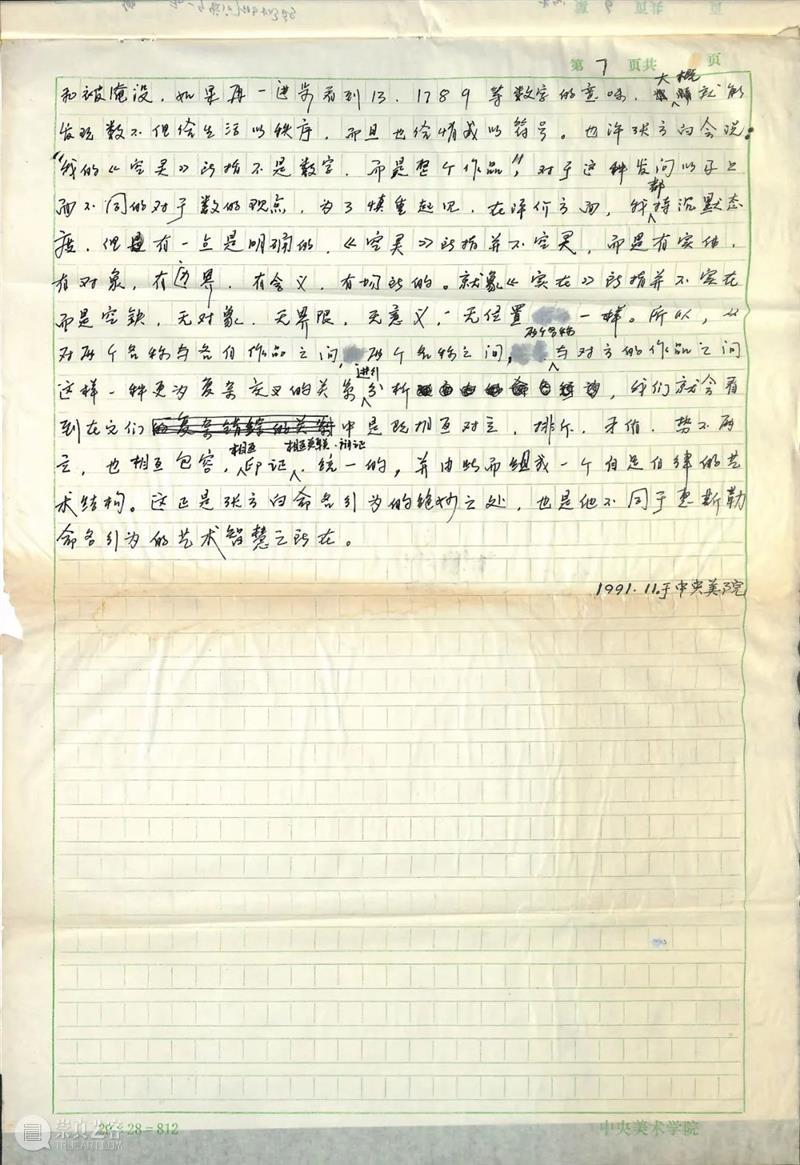 第 7 页共 页
和被淹没。如果再一进步看到13、1789等数字的意味,大概就能
发现数不但给生活以秩序,而且也给情感以符号。也许张方白会说:
“我的《空灵》所指不是数字,而是整个作品”,对于这种发问以及上
面不同的对于数的观点,为了慎重起见,在评价方面,我都持沉默态
度。但是有一点是明确的,《空灵》所指并不空灵,而是有实体,
有对象,有边界,有含义,有场所的。就象《实在》所指并不实在
而是空缺,无对象,无界限,无意义,无位置一样。所以,从
对两个名称与各自作品之间,两个名称之间,两个名称与对方的作品之间
这样一种更为复杂交叉的关系进行分析,我们就会看
到在它们中是既相互对立,排斥,矛盾,势不两
立,也相互包容,相互印证,相互关联、辩证统一的,并由此而组成一个自足自律的艺
术结构。这正是张方白命名行为的绝妙之处,也是他不同于惠斯勒
命名行为的艺术智慧之所在。
1991.11.于中央美院
28-812
中央美术学院
崇真艺客
TRUEART.COM